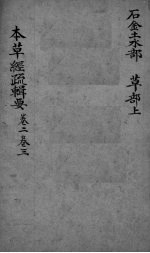 石金土水部　草部上
本草經疏輯要 卷二卷三